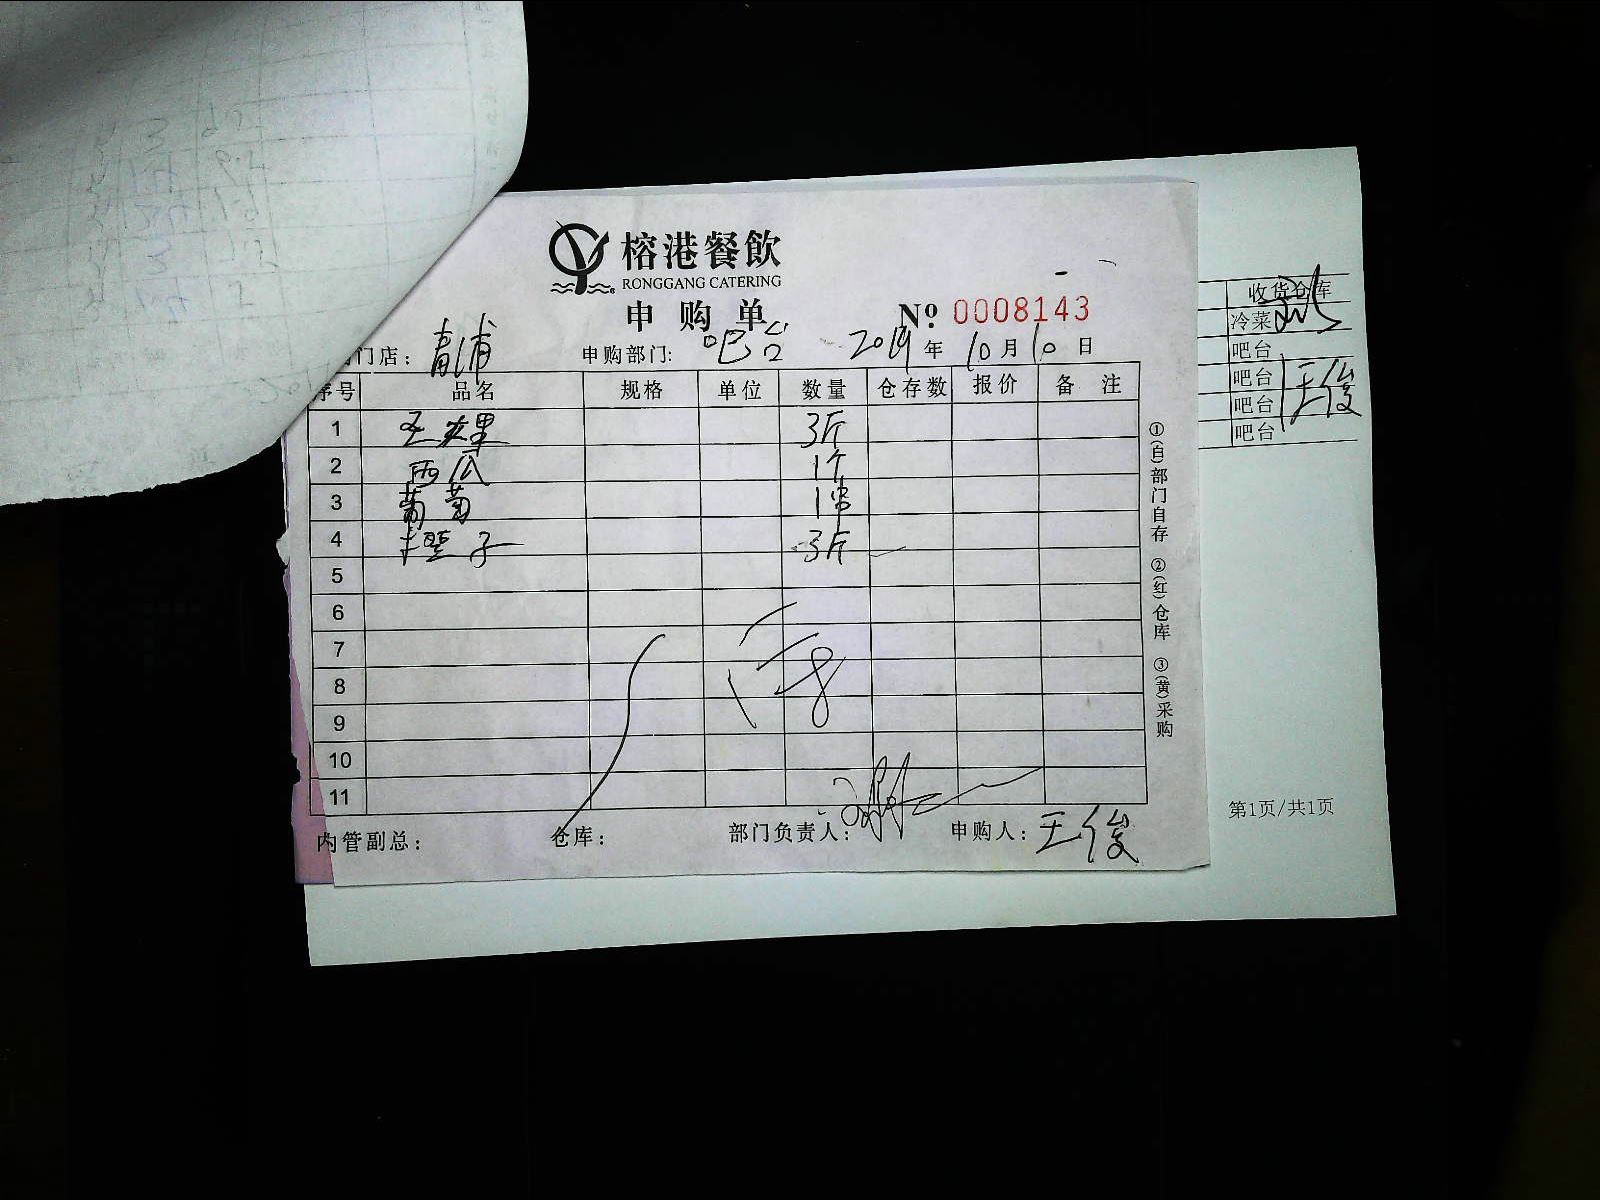 榕港餐飲
RONGGANG CATERING
申购单
№ 0008143
门店： 青浦 申购部门： 吧台 2019年10月10日
序号 品名 规格 单位 数量 仓存数 报价 备注
1 3斤
2 西瓜 1个
3 葡萄 1串
4 橙子 3斤
5
6
7
8
9
10
11
内管副总： 仓库： 部门负责人： 申购人： 王俊
①(白)部门自存 ②(红)仓库 ③(黄)采购
收货仓库
冷菜
吧台
吧台 王俊
吧台
吧台
第1页/共1页